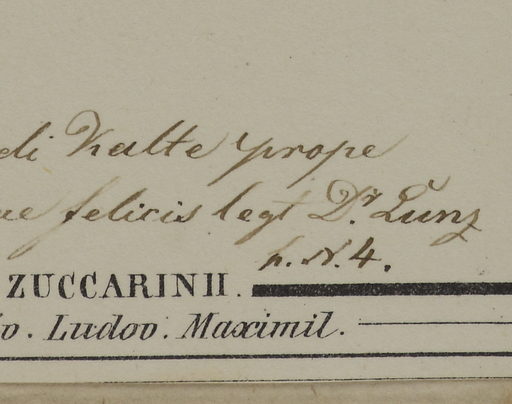 di Kalte prope
ae felicis legt Dr. Lunz
h. N. 4.
ZUCCARINII.
iv. Ludov. Maximil.